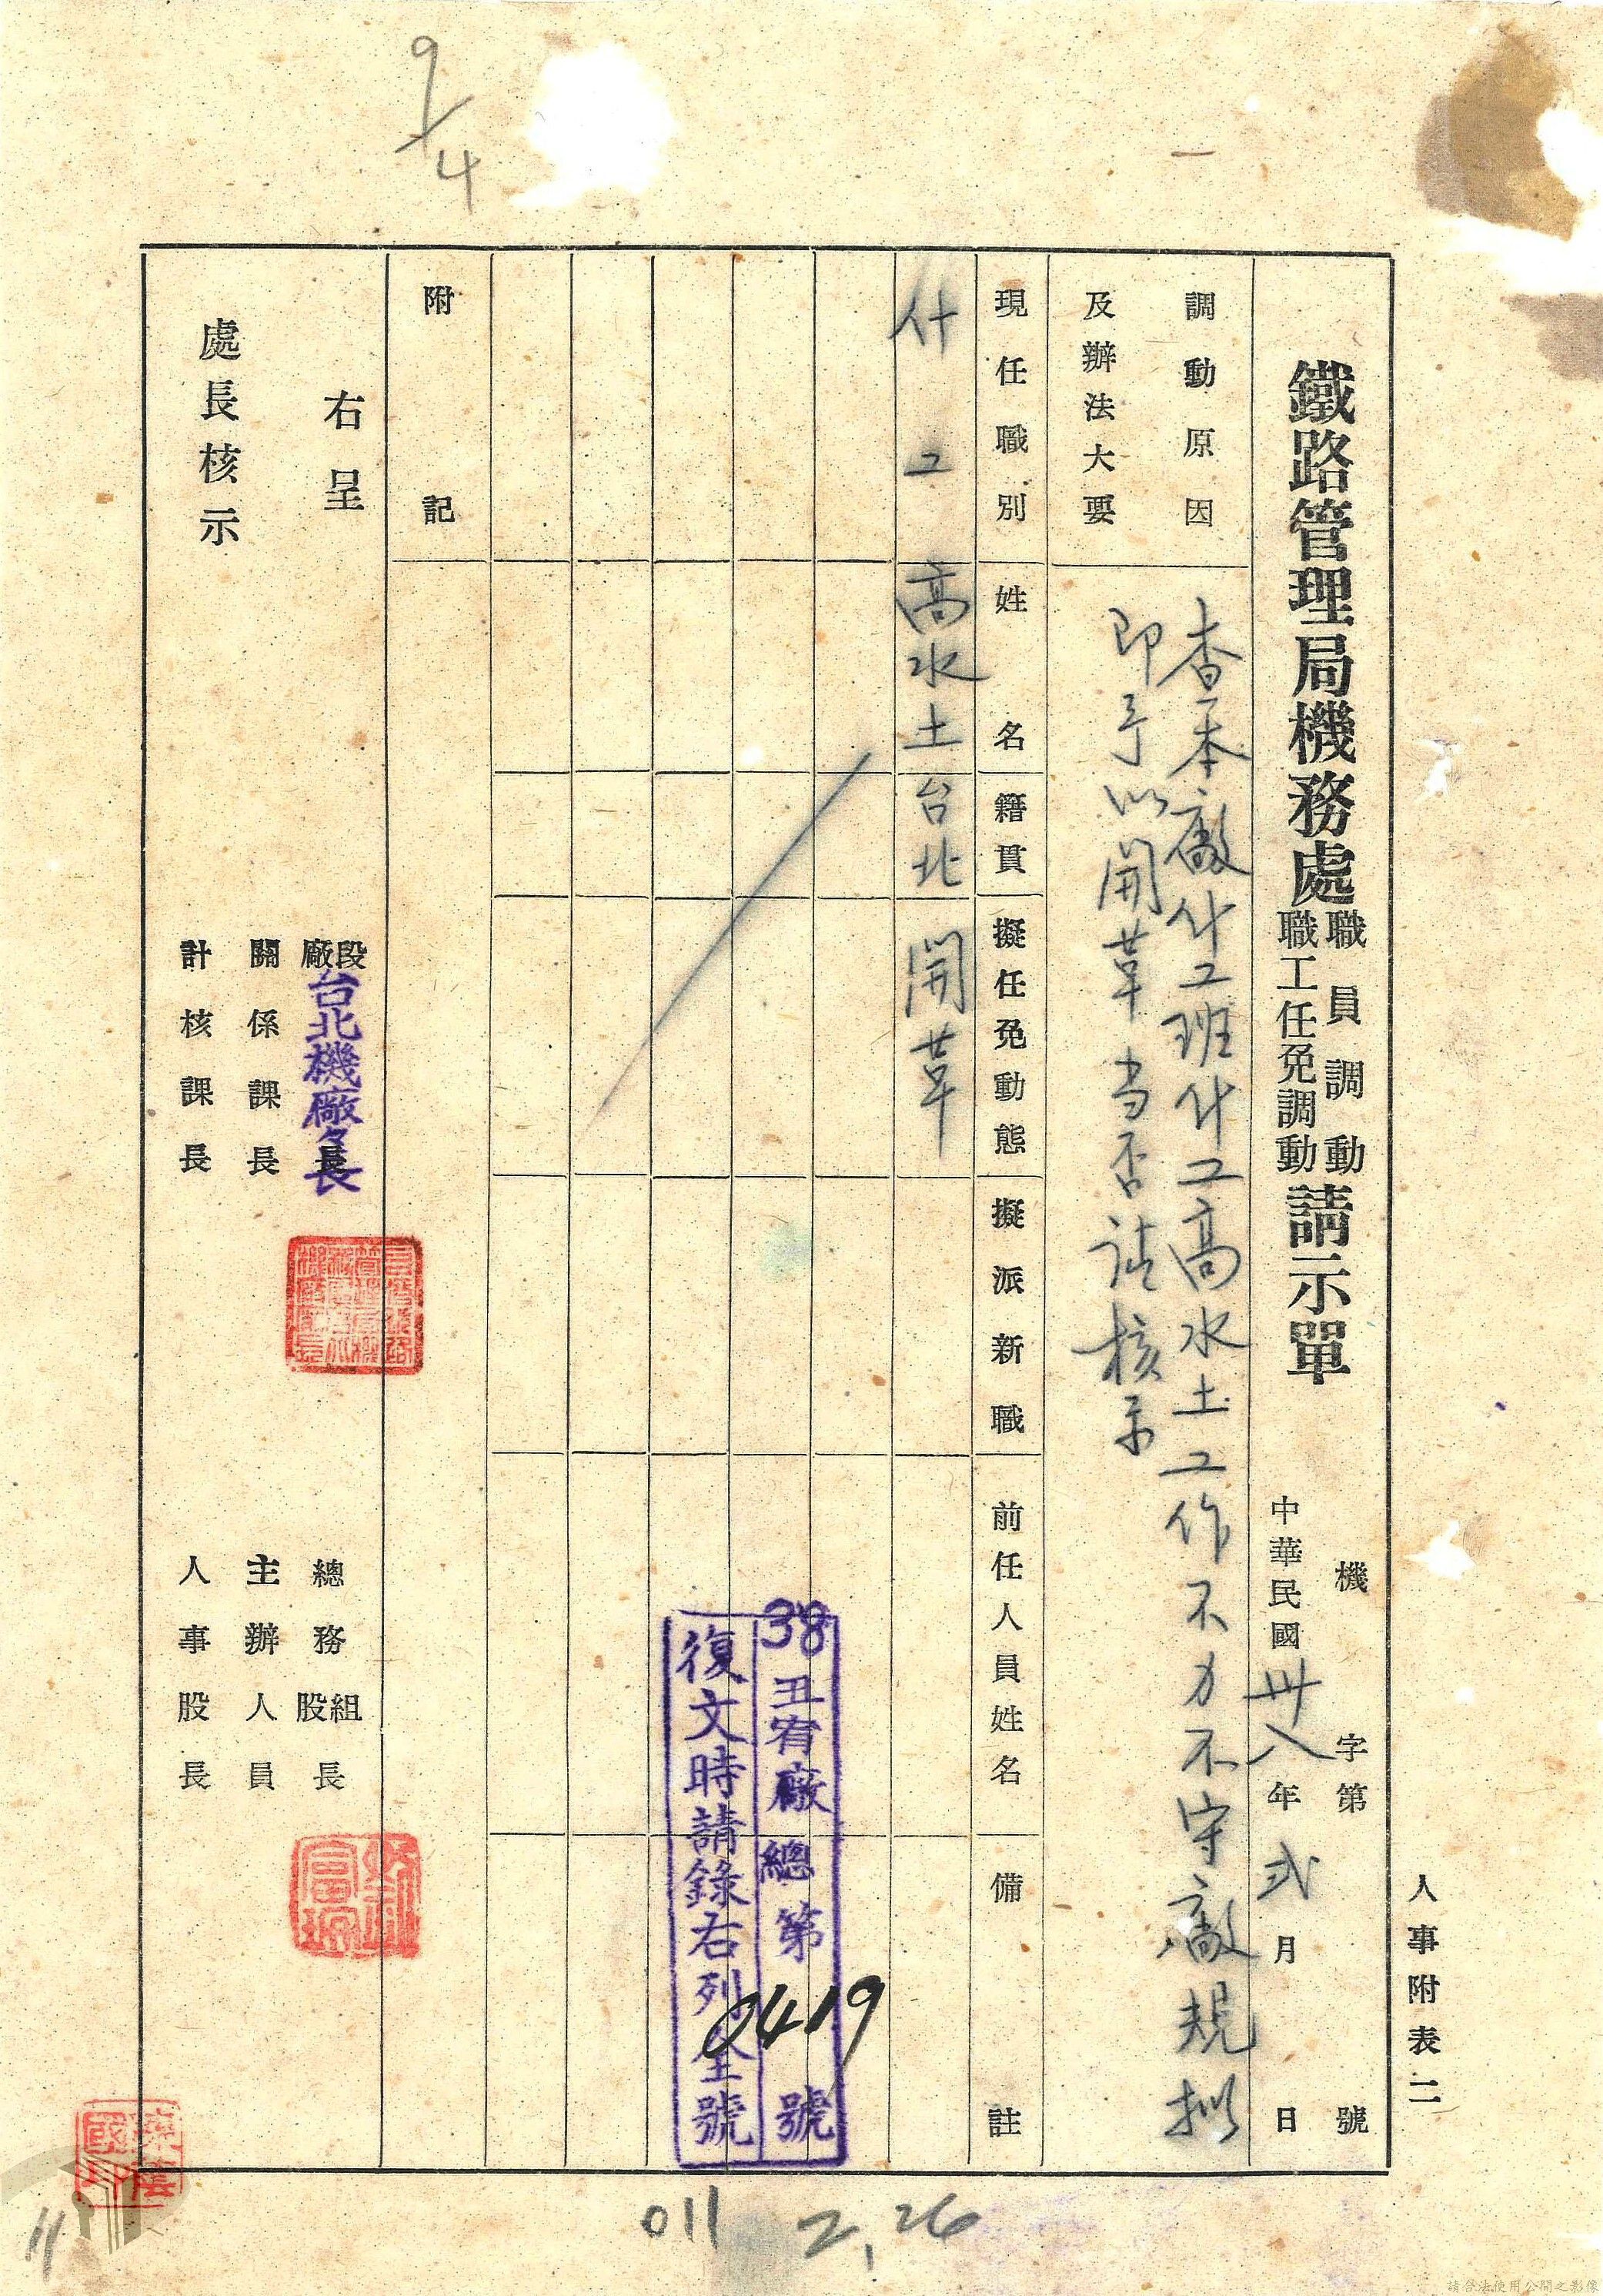 9/4
人事附表二
機 字第 號
鐵路管理局機務處職員調動職工任免調動請示單
中華民國卅八年弍月 日
調動原因及辦法大要
查本廠什工班什工高水土工作不力不守廠規擬
即予以開革当否請核示
現任職別 姓名 籍貫 擬任免動態 擬派新職 前任人員姓名 備註
什工 高水土 台北 開革
38丑宥廠總第0419號
復文時請錄右列全號
附記
右呈
處長核示
段廠長
台北機廠々長
關係課長
計核課長
總務組股長
主辦人員
人事股長
011
2,26
11
請合法使用公開之影像